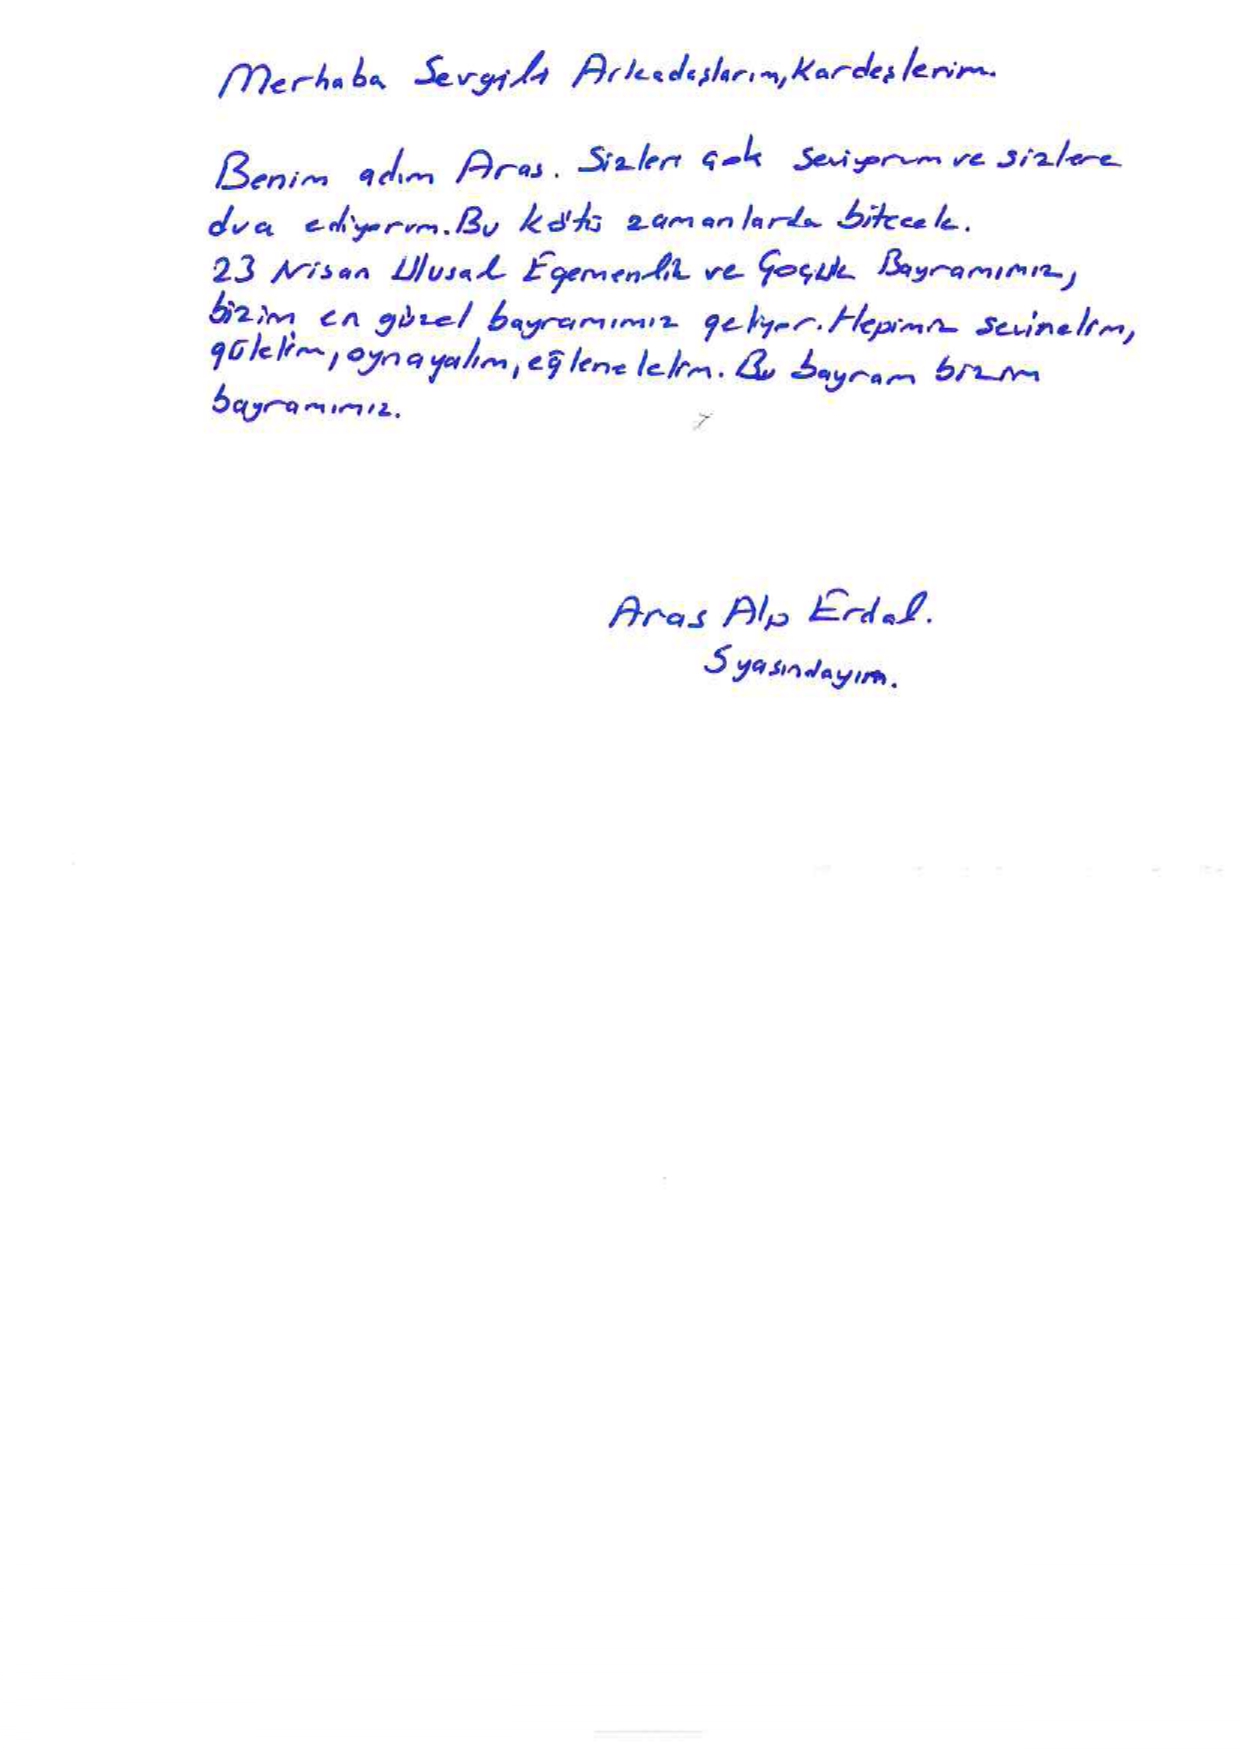 Merhaba Sevgili Arkadaşlarım, Kardeşlerim.
Benim adım Aras. Sizleri çok seviyorum ve sizlere
dua ediyorum. Bu kötü zamanlarda bitecek.
23 Nisan Ulusal Egemenlik ve Çoçuk Bayramımız,
bizim en güzel bayramımız geliyor. Hepimiz sevinelim,
gülelim, oynayalım, eğlenelelim. Bu bayram bizim
bayramımız.
Aras Alp Erdal.
5 yasındayım.